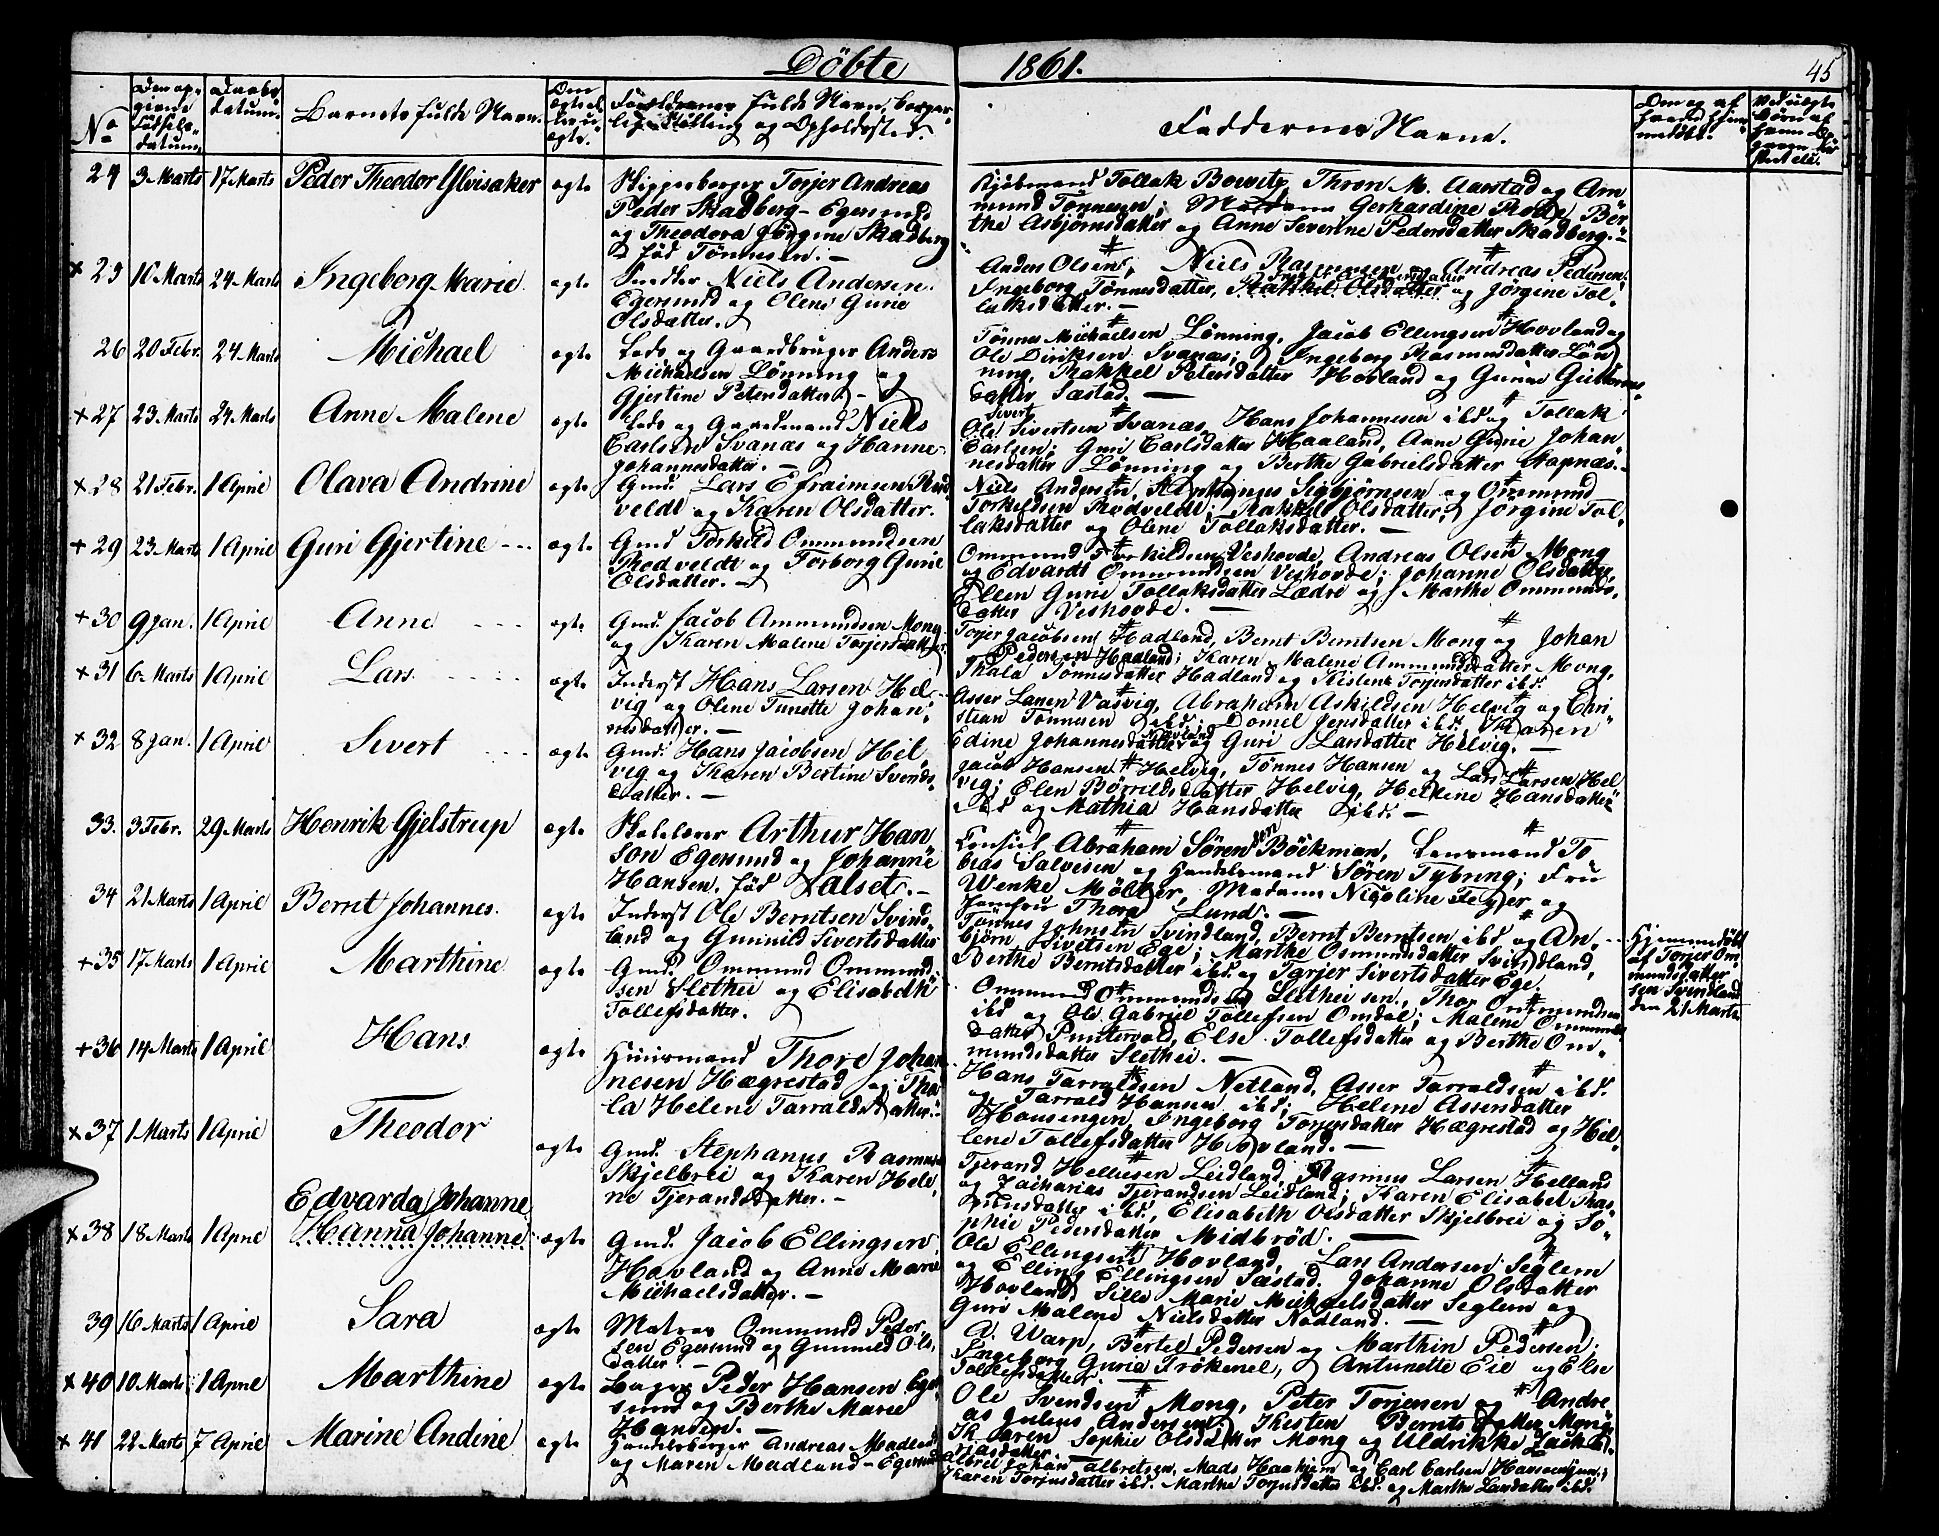 Döbte 1861. 45
No
Den op-
givne
Födsels-
datum.
Daabs-
datum.
Barnets fulde Navn.
Om
ægte el-
ler u-
ægte.
Forældrenes fulde Navn, borger-
lige Stilling og Opholdssted.
Faddernes Navne.
24 3 Marts 17 Marts Peder Theodor Ylvisaker ægte
Skipperborger Torjer Andreas
Peder Skadberg - Egersund
og Theodora Jörgine Skadberg
född Tönnesen. -
Kjöbmand Tollak Bowitz, Thron M. Aarstad og Am
mund Tönnesen; Madame Gerhardine Rodde Ber-
the Asbjörnsdatter og Anne Severine Pedersdatter Skadberg. -
× 25 10 Marts 24 Marts Ingeborg Marie ægte
Snedker Niels Andersen
Egersund og Olene Gurie
Olsdatter. -
Anders Olsen, Niels Rasmussen Andreas Pedersen;
Ingeborg Tönnesdatter, Rakkel Olsdatter og Jörgine Tol-
laksdatter. -
26 20 Febr. 24 Marts Michael ægte
Lods og Gaardbruger Anders
Michaelsen Lönning og
Gjertine Petersdatter -
Tönnes Michaelsen Lönning, Jacob Ellingsen Hovland og
Ole Diriksen Svanæs; Ingeborg Rasmusdatter Lön
ning, Rakkel Petersdatter Hovland og Gunne Guttorms-
datter Sæstad. -
× 27 23 Marts 24 Marts Anne Malene ægte
Lods og Gaardmand Niels
Carlsen Svanæs og Hanne
Johannesdatter. -
Sivert
Ole Sivertsen Svanæs, Hans Johannesen ibd og Tollak
Carlsen; Guri Carlsdatter Haaland, Anne Gurie Johan
nesdatter Lönning og Berthe Gabrielsdatter Stapnæs. -
× 28 21 Febr. 1 April Olava Andrine ægte
Gmd. Lars Efraimsen Rod
veldt og Karen Olsdatter.
Niels Andersen, Sigbjörnsen og Ommund
Torkildsen Rodveldt; Rakkel Olsdatter, Jörgine Tol-
laksdatter og Olene Tollaksdatter. -
+ 29 23 Marts 1 April Guri Gjertine ægte
Gmd Torkild Ommundsen
Rodveldt og Torborg Gurie
Olsdatter. -
Ommund Torkildsen Veshovde, Andreas Olsen Mong
og Edvardt Ommundsen Veshovde; Johanne Olsdatter,
Ellen Gurie Tollaksdatter Lædre og Marthe Ommunds-
datter Veshovde. -
+ 30 9 Jan. 1 April Anne ægte
Gmd. Jacob Ammundsen Mong
og Karen Malene Torjersdatter
Torjer Jacobsen Hadland, Bernt Berntsen Mong og Johan
Pedersen Haaland; Karen Malene Ammundsdatter Mong,
Thala Tönnesdatter Hadland og Kistene Torjersdatter ibd.
× 31 6 Marts 1 April Lars ægte
Inderst Hans Larsen Hel-
vig og Olene Tunette Johan-
nesdatter. -
Asser Larsen Vasvig, Abraham Askildsen Helvig og Chri
stian Tönnesen ibd; Domel Jensdatter ibd, Karen
Edine Johannesdatter og Guri Larsdatter Helvig. -
× 32 8 Jan. 1 April Sivert ægte
Gmd. Hans Jacobsen Hel
vig og Karen Bertine Svends-
datter. -
Jacob Hansen Helvig, Tönnes Hansen og Lars Larsen Hel
vig; Elen Börrildsdatter Helvig, Helene Hansdatter
ibd og Mathia Hansdatter ibd. -
33. 3 Febr. 29 Marts Henrik Gjelstrup ægte
Skolelærer Arthur Han
son Egersund og Johanne
Hansen, född Valset. -
Consul Abraham Sörensen Böckman, Lensmand To
bias Salvesen og Handelsmand Sören Tybring; Fru
Wenke Mölker, Madame Nicoline Feyer og
Jomfru Thora Lund. -
34 21 Marts 1 April Bernt Johannes. ægte
Inderst Ole Berntsen Svind
land og Gunnild Sivertsdatter
Tönnes Johnsen Svindland, Bernt Berntsen ibd og An-
björn Sivetsen Ege; Marthe Osmundsdatter Svindland,
Berthe Berntsdatter ibd og Tarjer Sivertsdatter Ege.
Hjemmedöbt
af Torjer Om
mundsdatter
Svindland
den 21 Marts
+ 35 17 Marts 1 April Marthine ægte
Gmd. Ommund Ommund
sen Slethei og Elisabeth
Tollefsdatter.
Ommund Ommundsen Slethei sen., Thor Ommundsen
ibd og Ole Gabriel Tollefsen Omdal; Malene Ommunds
datter Puntervold, Else Tollefsdatter og Berthe Om-
mundsdatter Slethei. -
+ 36 14 Marts 1 April Hans ægte
Huusmand Thore Johan
nesen Hægrestad og Tha
la Helene Tarraldsdatter. -
Hans Tarraldsen Netland, Asser Tarraldsen ibd.
Tarrald Hansen ibd; Helene Assersdatter
Housingen, Ingeborg Torjersdatter Hægrestad og Hel-
lene Tollefsdatter Hovland. -
× 37 1 Marts 1 April Theodor ægte
Gmd. Stephanus Rasmus
Skjelbrei og Karen Hele-
ne Tjerandsdatter. -
Tjerand Helliesen Leidland, Rasmus Larsen Helland
og Zacharias Tjerandsen Leidland; Karen Elisabet Ras-
musdatter ibd, Elisabeth Olsdatter Skjelbrei og So-
phie Pedersdatter Midbröd. -
Edvarda Johanne
× 38 18 Marts 1 April Hanna Johanne ægte
Gmd. Jacob Ellingsen
Hovland og Anne Marie
Michaelsdatter. -
Ole Ellingsen Hovland, Lars Andersen Seglem
og Elling Ellingsen Sæstad. Johanne Olsdatter
Hovland, Sille Marie Michaelsdatter Seglem og
Guri Malene Nielsdatter Nodland. -
39 16 Marts 1 April Sara ægte
Matros Ommund Peder
sen Egersund og Gunnild Ols-
datter. -
A. Warp, Bertel Pedersen og Marthin Pedersen;
Ingeborg Gurie Frökenel, Antunette Eie og Else
Tollefsdatter.
× 40 10 Marts 1 April Marthine ægte
Bager Peder Hansen Eger
sund og Berthe Marie
Hansen. -
Ole Svendsen Mong, Peter Torjersen og Andre
as Julius Andersen; Kisten Berntsdatter Mong
Karen Sophie Olsdatter Mong og Uldrikke Zacha-
riasdatter
× 41 22 Marts 7 April Marine Andine ægte
Handelsborger Andreas Madland
og Maren Madland - Egersund
Albret Johan Albretsen, Mads Haakjem og Carl Carlsen
Karen Torjersdatter ibd. Marthe Torjersdatter ibd. og Marthe Larsdatter ibd.